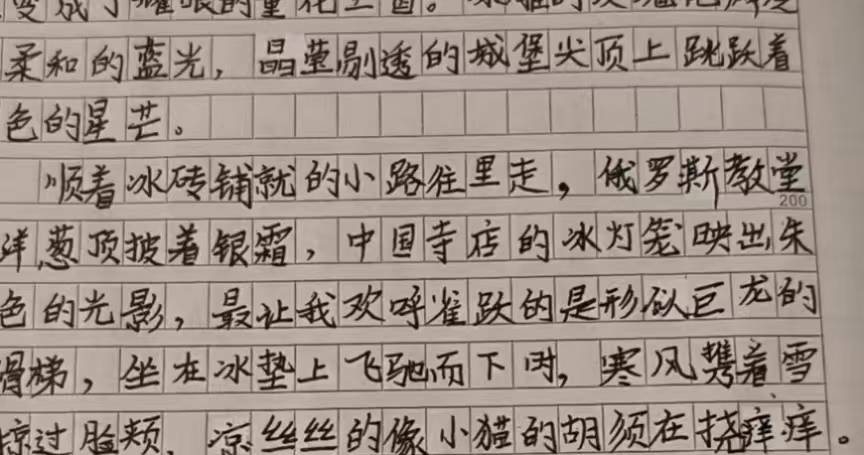 变成了耀眼的童化王国。
柔和的蓝光，晶莹剔透的城堡尖顶上跳跃着
色的星芒。
顺着冰砖铺就的小路往里走，俄罗斯教堂
200
洋葱顶披着银霜，中国寺店的冰灯笼映出朱
色的光影，最让我欢呼雀跃的是形似巨龙的
滑梯，坐在冰垫上飞驰而下时，寒风携着雪
掠过脸颊，凉丝丝的像小猫的胡须在挠痒痒。